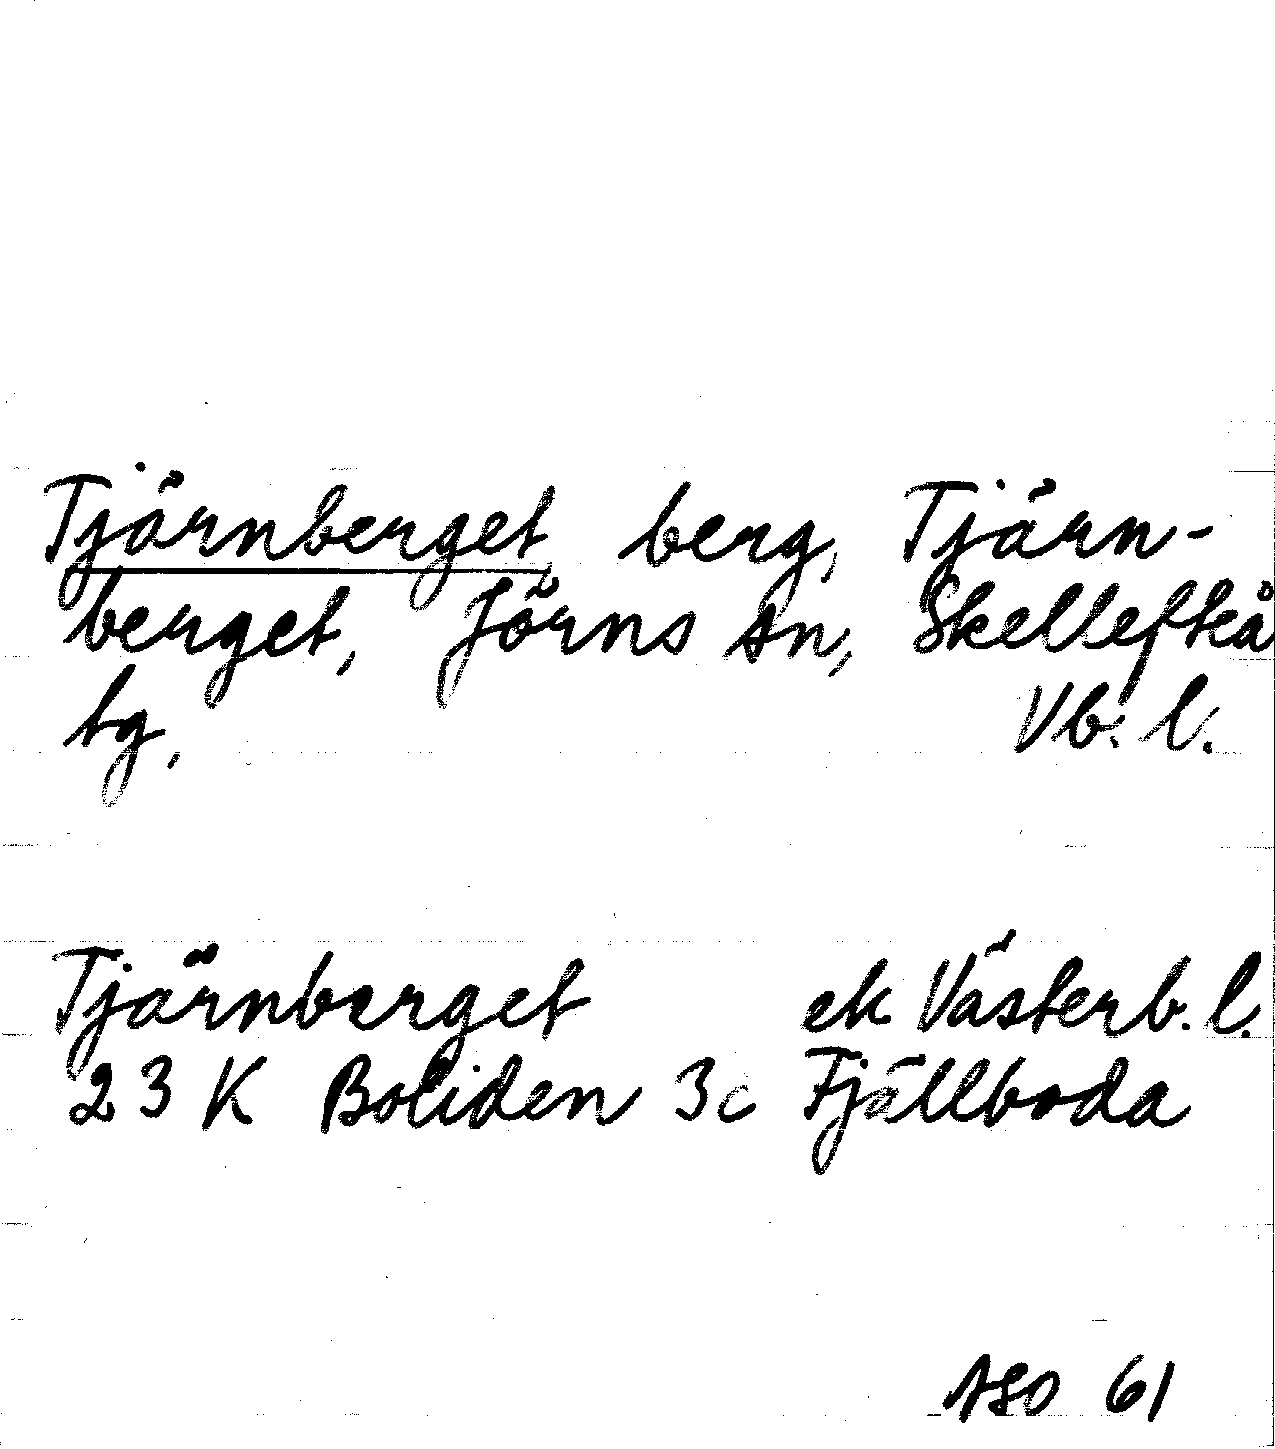 Tjärnberget, berg, Tjärn-
berget, Jörns sn, Skellefteå
tg, Vb. l.
Tjärnberget ek Västerb. l.
23 K Boliden 3c Fjällboda
ASO 61